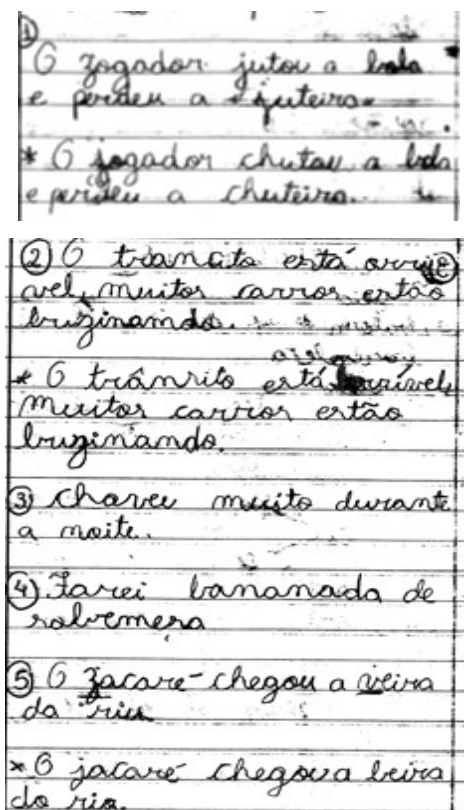 ①
O zogador jutou a bola
e perdeu a juteira.
* O jogador chutou a bola
e perdeu a chuteira.
② O trancito está orrive
vel, muitos carros estão
buzinamdo.
* O trânsito está horrível,
muitos carros estão
buzinando.
③ Choveu muito durante
a noite.
④ Farei bananada de
sobremesa
⑤ O zacaré chegou a veira
da riu
* O jacaré chegou a beira
do rio.